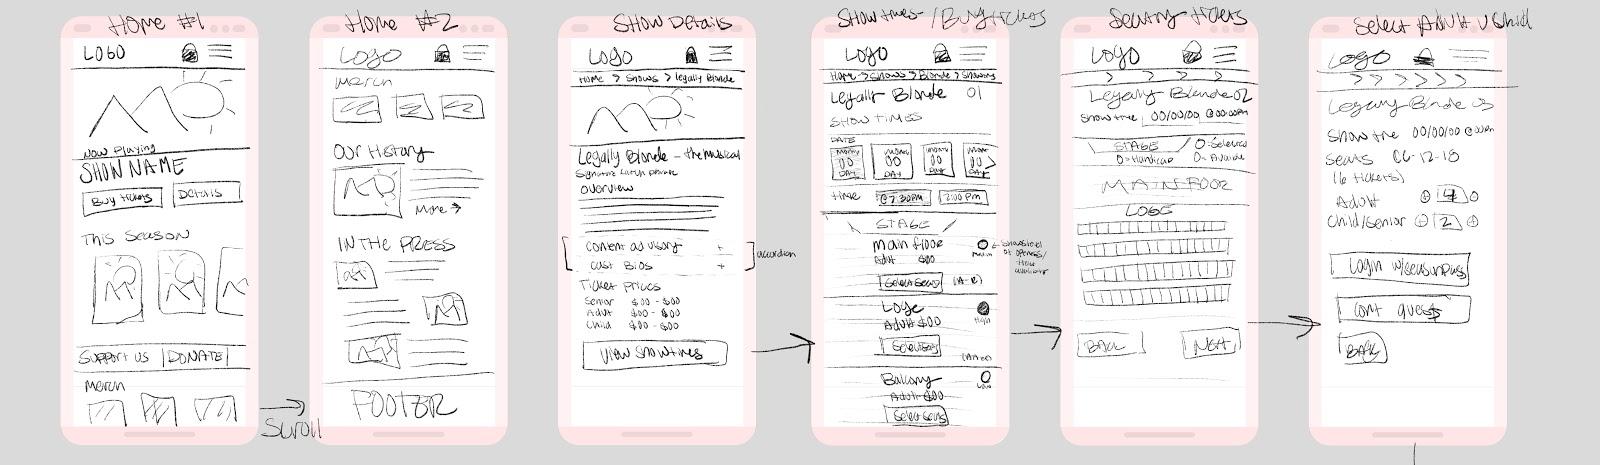 Home #1
LOGO
NOW Playing
SHOW NAME
Buy tickets
Details
THIS SEASON
Support us
DONATE
Merch
Scroll
Home #2
LOGO
Merch
Our History
More →
IN THE PRESS
FOOTER
Show Details
LOGO
Home > Shows > legally Blonde
Legally Blonde - the musical
overview
Content advisory +
Cast Bios +
accordion
Ticket Prices
Senior $00 - $00
Adult $00 - $00
Child $00 - $00
View Showtimes
Showtimes / Buy tickets
Logo
Home > Shows > Blonde > Showtimes
Legally Blonde 01
SHOW TIMES
DATE
00 00 00 00
DAY DAY DAY DAY
time @7:30pm 2:00pm
STAGE
main floor
Adult $00
Select Seats
Loge
Adult $00
High
Select Seats
Balcony
Adult $00
Low
Select Seats
LOGO
Legally Blonde 02
Showtime 00/00/00 @00:00pm
STAGE
O-Selected
O-Handicap
MAIN FLOOR
LOGE
BACK
NEXT
Select Adult v Child
Logo
Legally Blonde 03
Show time 00/00/00 @00pm
Seats
(6 tickets)
Adult 4
Child/Senior 2
Login w/season pass
Cont guest
BACK